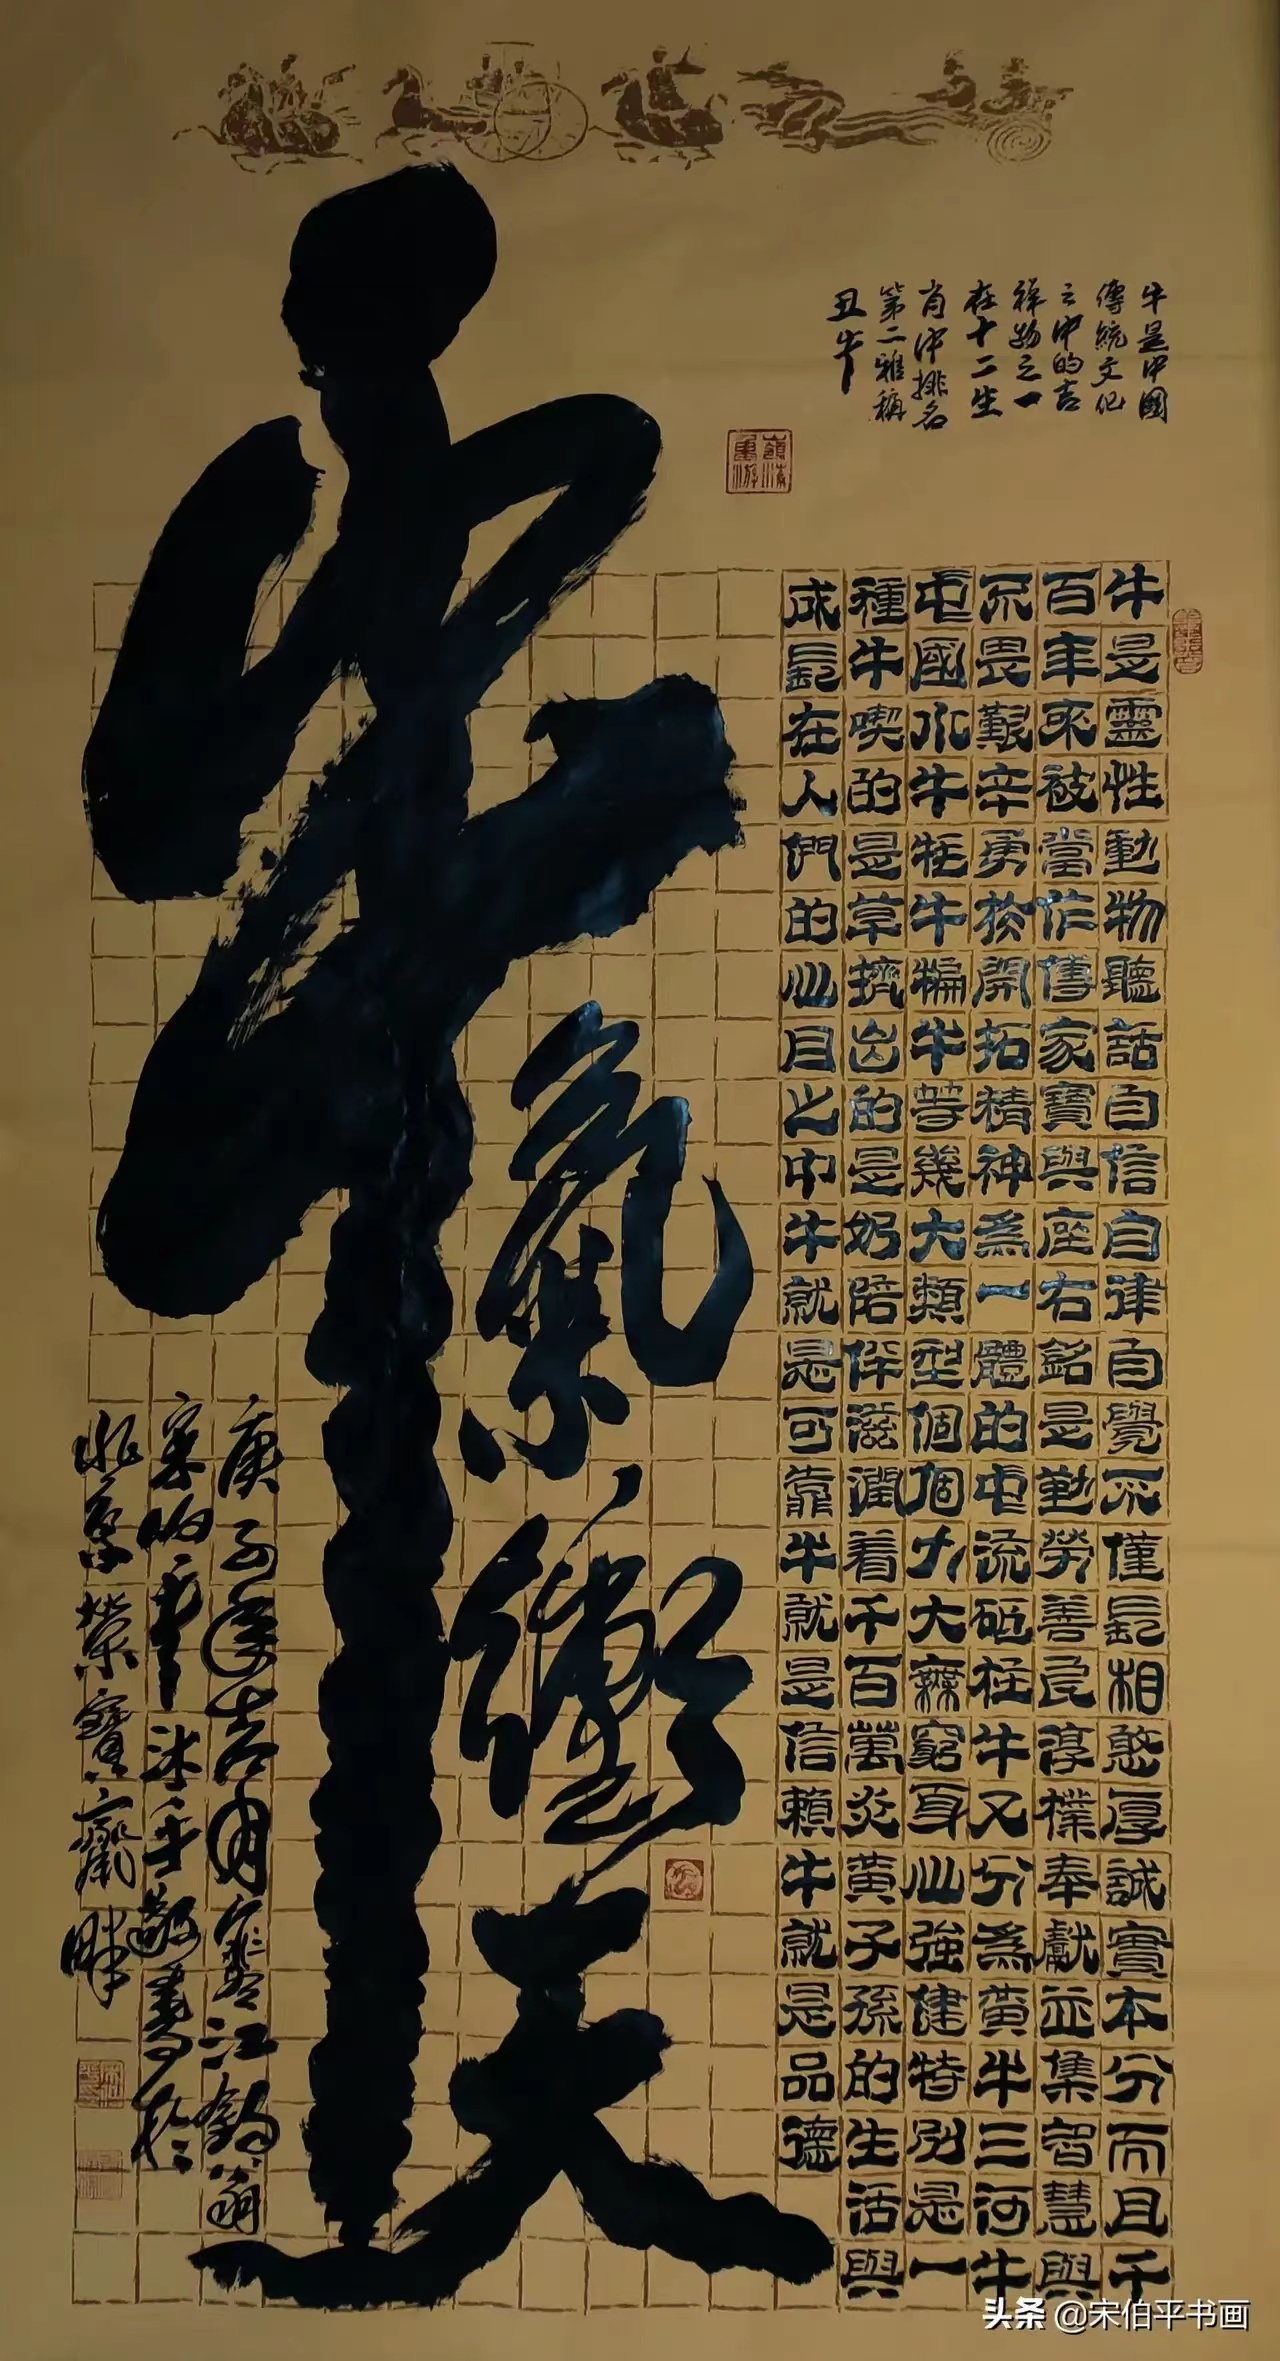 牛是中國
傳統文化
之中的吉
祥物之一
在十二生
肖中排名
第二雅稱
丑牛
牛是靈性動物聽話自信自律自覺不僅長相憨厚誠實本分而且千
百年來被當作傳家寶與座右銘是勤勞善良淳樸奉獻並集智慧與
不畏艱辛勇於開拓精神為一體的中流砥柱牛又分為黃牛三河牛
中國水牛牦牛犏牛等幾大類型個個力大無窮身心強健特別是一
種牛喫的是草擠出的是奶陪伴滋潤着千百萬炎黃子孫的生活與
成長在人們的心目之中牛就是可靠牛就是信賴牛就是品德
牛氣衝天
庚子年吉月寒江釣翁
宋伯平沐手敬書於
北京榮寶齋畔
头条 @宋伯平书画